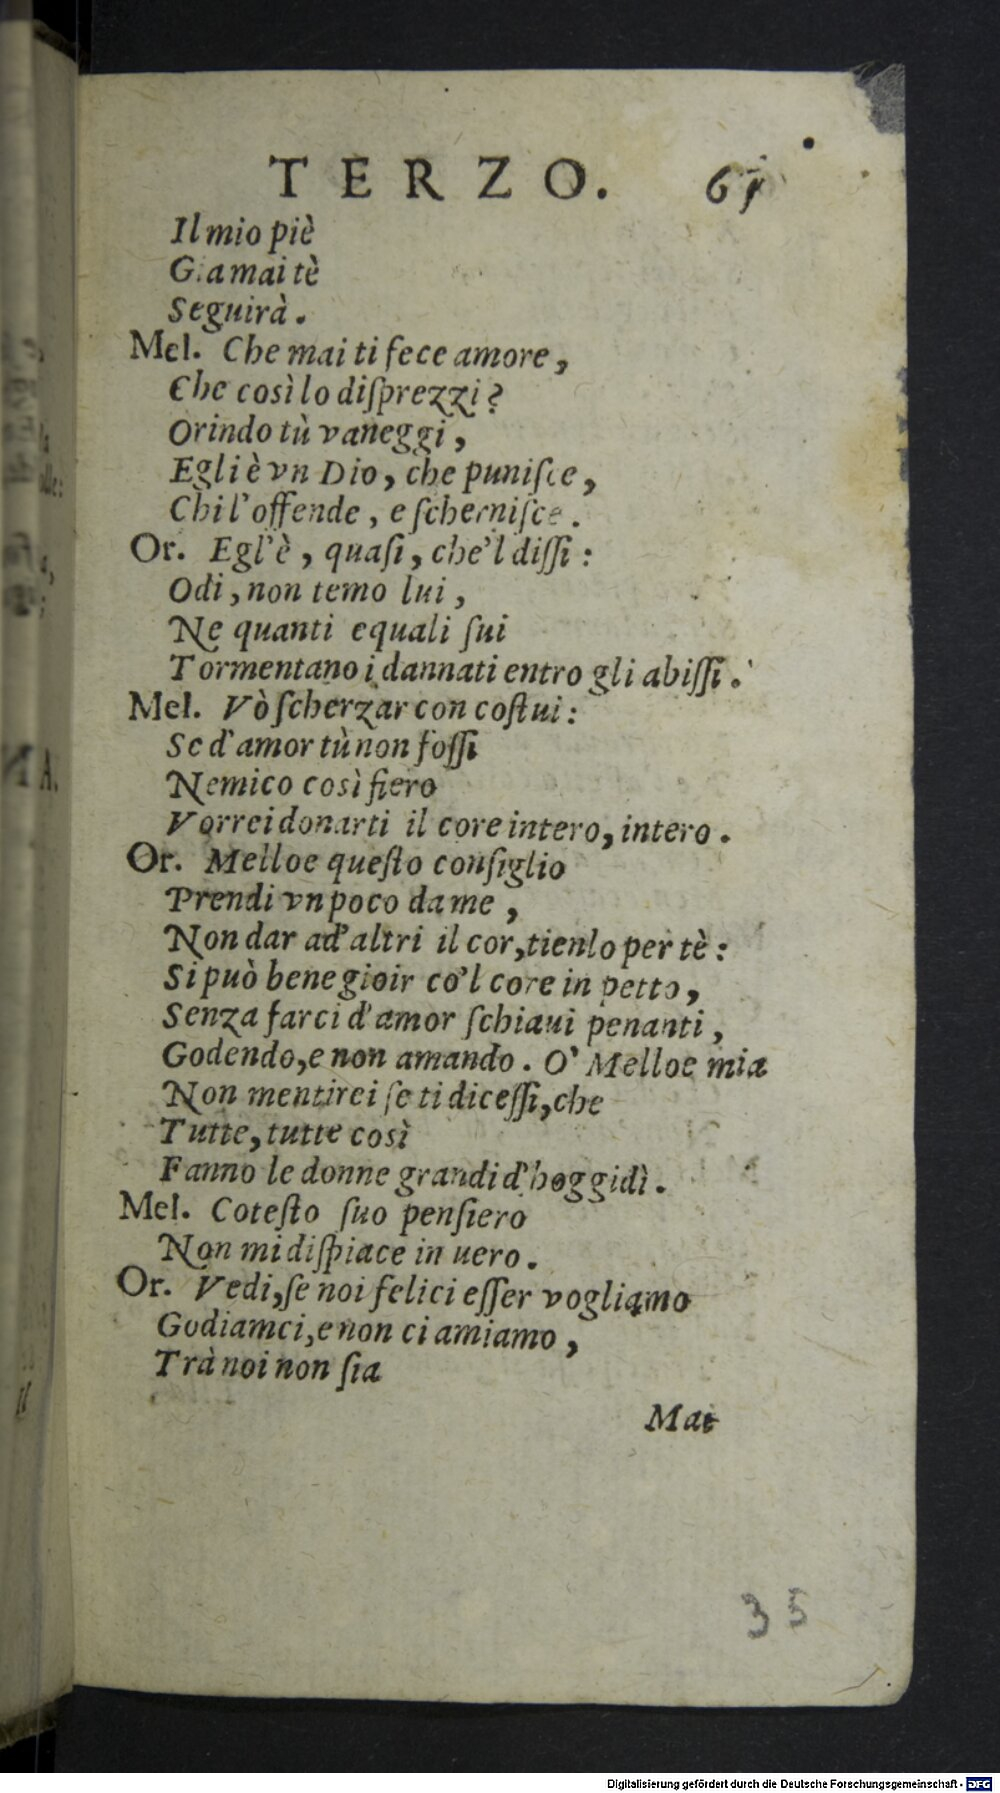 TERZO. 61
Il mio piè
Giamai tè
Seguirà.
Mel. Che mai ti fece amore,
Che così lo diſprezzi?
Orindo tù vaneggi,
Egli è vn Dio, che puniſce,
Chi l'offende, e ſcherniſce.
Or. Egl'è, quaſi, che'l diſſi:
Odi, non temo lui,
Ne quanti equali ſui
Tormentano i dannati entro gli abiſſi.
Mel. Vò ſcherzar con coſtui:
Se d'amor tù non foſſi
Nemico così fiero
Vorrei donarti il core intero, intero.
Or. Melloe queſto conſiglio
Prendi vn poco da me,
Non dar ad'altri il cor, tienlo per tè:
Si può bene gioir co'l core in petto,
Senza farci d'amor ſchiaui penanti,
Godendo, e non amando. O' Melloe mia
Non mentirei ſe ti diceſſi, che
Tutte, tutte così
Fanno le donne grandi d'hoggidì.
Mel. Coteſto ſuo penſiero
Non mi diſpiace in uero.
Or. Vedi, ſe noi felici eſſer vogliamo
Godiamci, e non ci amiamo,
Trà noi non ſia
Mai
35
Digitalisierung gefördert durch die Deutsche Forschungsgemeinschaft - DFG